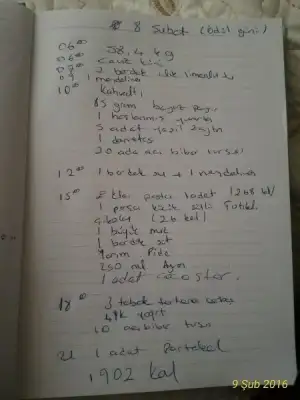 8 Şubat (ödül günü)
06⁰⁰ 58,4 kg
06⁰⁰
07⁰⁰ 2 bardak ılık limonlu su
1 mandalina
10⁰⁰ Kahvaltı
85 gram beyaz peynir
1 haşlanmış yumurta
5 adet yeşil zeytin
1 domates
20 adet acı biber turşusu
12⁰⁰ 1 bardak su + 1 mandalina
15⁰⁰ Ekler pasta 1 adet (268 kal)
1 parça küçük sütlü
(26 kal)
1 büyük muz
1 bardak süt
Yarım Pide
250 ml Ayran
1 adet
18⁰⁰ 3 tabak tarhana çorbası
yoğurt
10 acı biber turşu
21 1 adet Portakal
1902 kal
9 Şub 2016